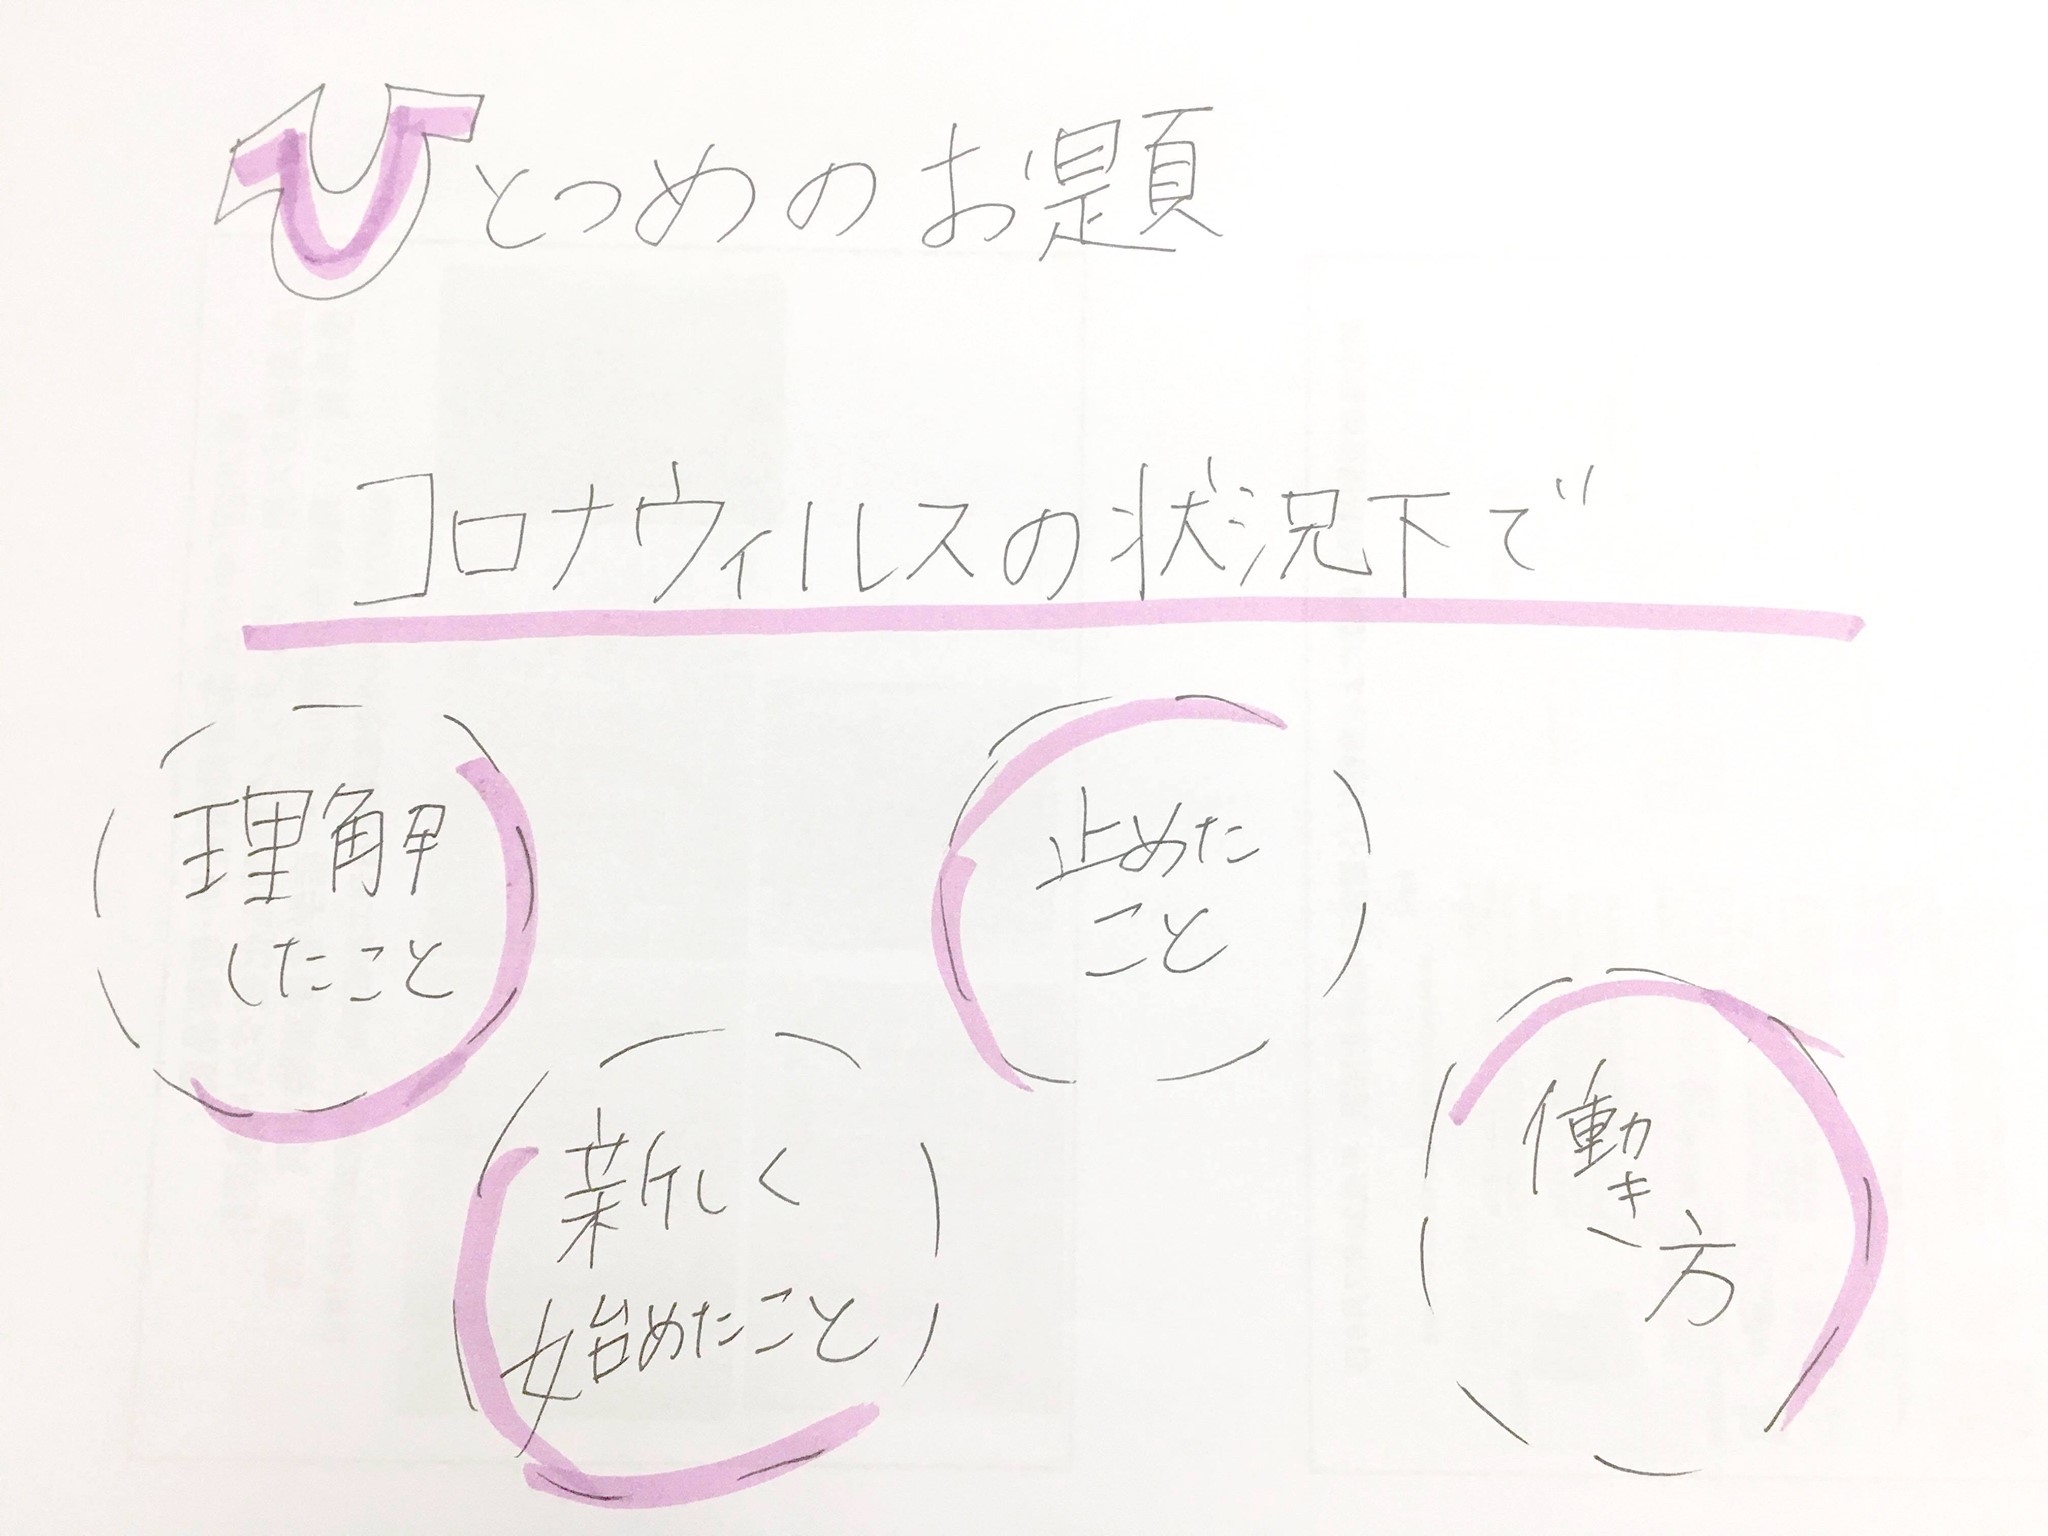 ひとつめのお題
コロナウィルスの状況下で
理解
したこと
止めた
こと
新しく
始めたこと
働き
方